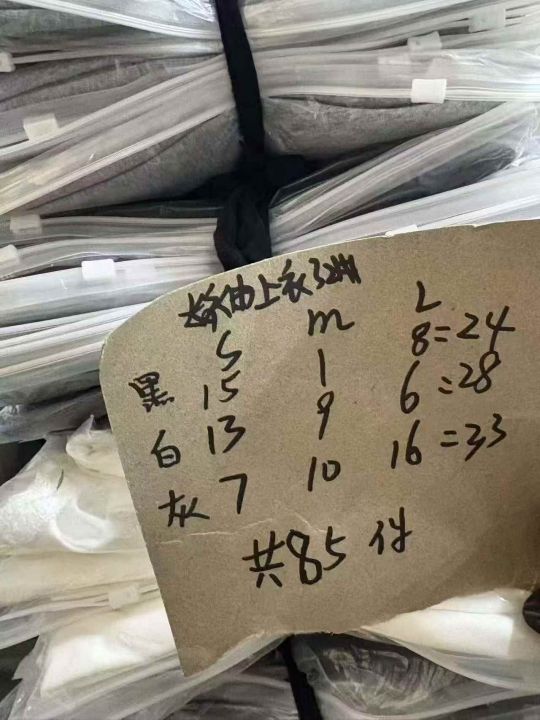 袖上衣
S m L
黑 15 1 8=24
白 13 9 6=28
灰 7 10 16=33
共85件